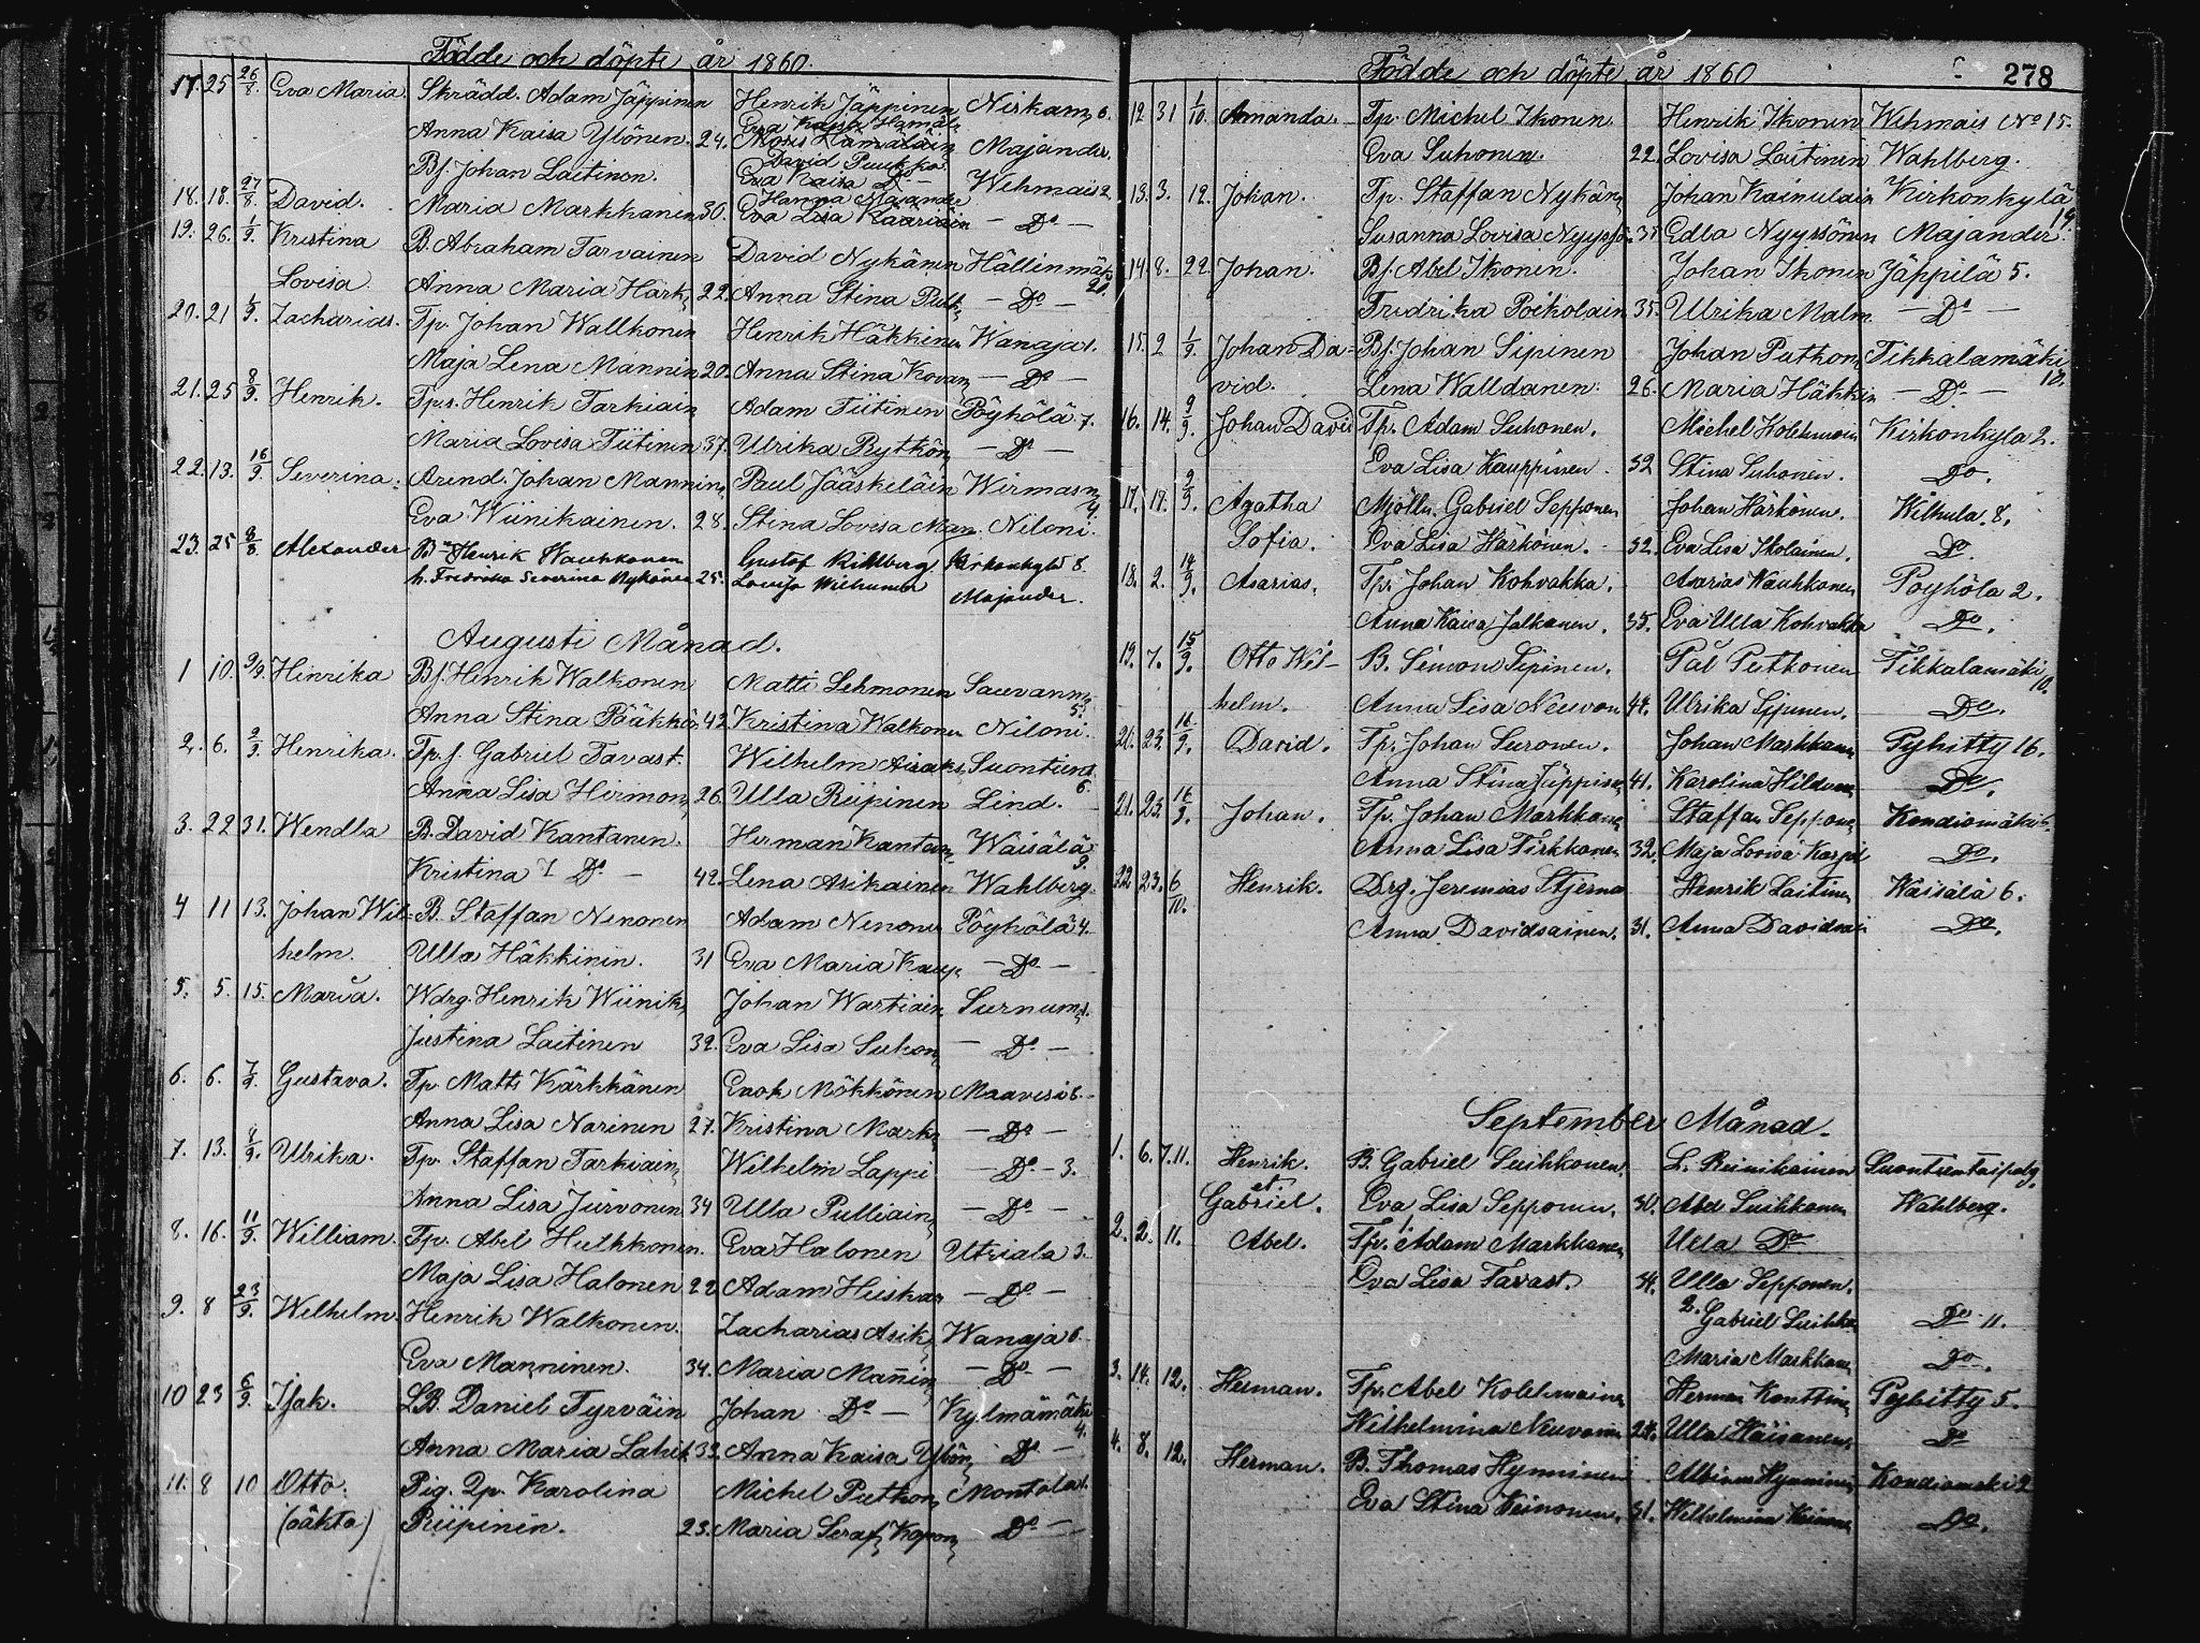 Födde och döpte år 1860.
17. 25 26/8. Eva Maria. Skrädd. Adam Jäppinen Henrik Jäppinen Niskam 6.
Eva Kaisa Hämäl
Anna Kaisa Ylönen. 24. Moses Hämäläin Majander.
David Puukko
Bf. Johan Laitinen. Eva Kaisa Do — Wehmais 2.
18. 18. 27/8. David. Hanna Majander
Maria Markkanen 30. Eva Lisa Kääriäin — Do —
19. 26. 1/9. Kristina B. Abraham Tarvainen David Nykänen Hällinmäk
20.
Lovisa. Anna Maria Härk 22. Anna Stina Pulk — Do —
20. 21 1/9. Zacharias. Tp. Johan Wallkonen Henrik Häkkinen Wanaja 1.
Maja Lena Mannin 20. Anna Stina Kovan — Do —
21. 25 8/9. Henrik. Tp.s. Henrik Tarkiain Adam Tiitinen Pöyhölä 7.
Maria Lovisa Tiitinen 37. Ulrika Rytkön — Do —
22. 13. 16/9. Severina. Arend. Johan Mannin Paul Jääskeläin Wirmasm
4.
Eva Wiinikainen. 28. Stina Lovisa Man. Niloni.
23. 25 8/8 Alexander Bn Henrik Haukkonen Gustof Kihlberg Kirkonkylä 8.
h. Fredrika Severina Nykänen 25. Lovisa Majander.
Augusti Månad.
1 10. 9/9. Henrika Bf. Henrik Walkonen Matti Lehmonen Sauvanm
5.
Anna Stina Pääkkö 42 Kristina Walkonen Niloni.
2. 6. 2/9. Henrika. Tp. f. Gabriel Tavast. Wilhelm Aisaks Suontient
6.
Anna Lisa Hirmon 26. Ulla Riipinen Lind.
3. 22 31. Wendla B. David Kantanen. Herman Kantan Wäisälä
2.
Kristina I Do — 42. Lena Asikainen Wahlberg.
4 11 13. Johan Wil- B. Staffan Nenonen Adam Nenonen Pöyhölä 4.
helm. Ulla Häkkinin. 31 Eva Maria Kaup — Do —
5. 5. 15. Maria. Wdrg. Henrik Wiinik Johan Wartiain Surnum
Justina Laitinen 32. Eva Lisa Suhon — Do —
6. 6. 7/9. Gustava. Tp. Matts Kärkkänen Enok Mökkönen Maavesi 6.
Anna Lisa Narinen 27. Kristina Mark — Do —
7. 13. 8/9. Ulrika. Tp. Staffan Tarkiain Wilhelm Lappi — Do — 3.
Anna Lisa Jurvonen 34 Ulla Pulliain — Do —
8. 16. 11/9. William. Tp. Abel Hulkkonen. Eva Halonen Utriala 3.
Maja Lisa Halonen 22 Adam Huskon — Do —
9. 8 23/9. Welhelm. Henrik Walkonen. Zacharias Asik Wanaja 6.
Eva Manninen. 34. Maria Mannin — Do —
10 23 6/9. Isak. LB. Daniel Tyrväin Johan Do — Kylmämäki
4.
Anna Maria Lahit 32. Anna Kaisa Ylön Do —
11. 8 10 Otto. Pig. Qp. Karolina Michel Putkon Montola 1.
(oäkta) Riipinen. 23. Maria Seraf Kapon Do —
Födde och döpte år 1860
278
12 31 1/10. Amanda. Tp. Michel Ikonen. Henrik Ikonen Wehmais No 15.
Eva Suhonen. 22. Lovisa Laitinen Wahlberg.
13. 3. 12. Johan. Tp. Staffan Nykän Johan Kainulain Kirkonkylä
19.
Susanna Lovisa Nyyssön 35 Edla Nyyssönen Majander.
14. 8. 22. Johan. Bf. Abel Ikonen. Johan Ikonen Jäppilä 5.
Fredrika Poikolain 35. Ulrika Malm. — Do —
15. 2 1/9. Johan Da- Bf. Johan Sipinen Johan Putkon Tikkalamäki
10.
vid. Lena Walldanen. 26. Maria Häkkin — Do —
16. 14. 9/9. Johan David Tp. Adam Suhonen. Michel Kolehmain Kirkonkyla 2.
Eva Lisa Kauppinen 32 Stina Suhonen. Do.
17. 19. 9/9. Agatha Mjölln. Gabriel Sepponen Johan Härkönen. Wilkula. 8.
Sofia. Eva Lisa Härkönen. 32. Eva Lisa Ikolainen. Do.
18. 2. 14/9. Asarias. Tp. Johan Kohvakka. Asarias Kauhkonen Pöyhölä 2.
Anna Kaisa Jalkanen. 35. Eva Ulla Kohvakka Do.
19. 7. 15/9. Otto Wil- B. Simon Sipinen. Pål Putkonen Tikkalamäki
10.
helm. Anna Lisa Neuvon 44. Ulrika Sipinen. Do.
20. 23. 16/9. David. Tp. Johan Suronen. Johan Markkanen Pyhitty 16.
Anna Stina Jäppine 41. Karolina Do.
21. 23 16/9. Johan. Tp. Johan Markkanen Staffan Seppone Kondiomäki 6.
Anna Lisa Tirkkonen 32. Maja Lovisa Karpi Do.
22 23. 6/10. Henrik. Drg. Jeremias Stjerna Henrik Laitine Wäisälä 6.
Anna Davidsainen. 31. Anna Davidsai Do.
September Månad.
1. 6. 7.11. Henrik. B. Gabriel Suihkonen. L. Reinikainen Suontientaipaly.
et.
Gabriel. Eva Lisa Sepponen. 30. Abel Suihkonen Wahlberg.
2. 2. 11. Abel. Tp. Adam Markkanen Ulla Do
Eva Lisa Tavast. 34. Ulla Sepponen.
2. Gabriel Suihko Do 11.
Maria Markkanen Do.
3. 14. 12. Herman. Tp. Abel Kolehmaine Herman Konttine Pyhitty 5.
Wilhelmina Neuvonen 24. Ulla Häisänen. Do
4. 8. 12. Herman. B. Thomas Hynninen Albinus Hynninen Kondiomäki 2
Eva Stina Keinonen. 31. Wilhelmina Keinone Do.